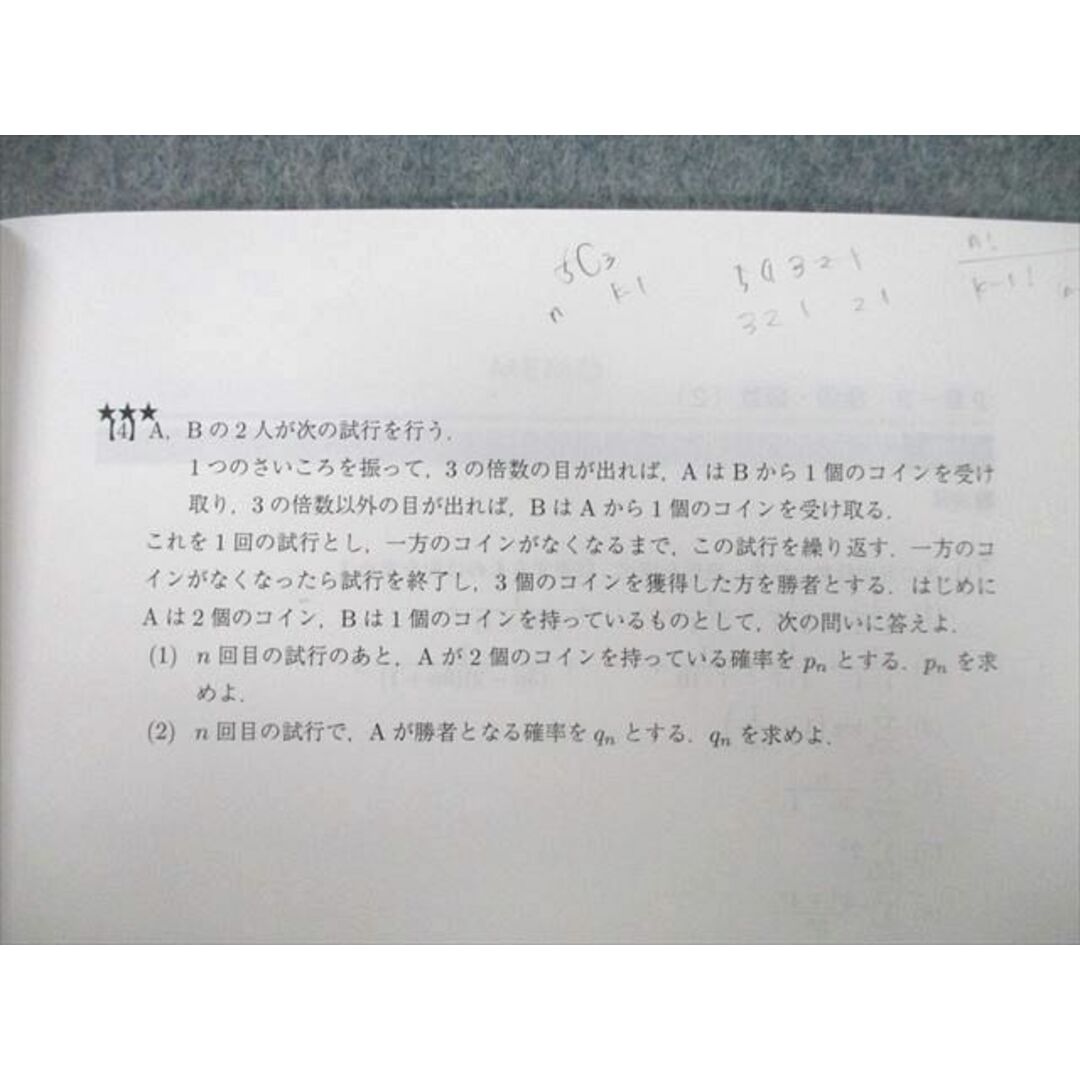 5C3
n k-1
5 4 3 2 1
3 2 1 2 1
n!
k-1!
★★★
【4】A，Bの2人が次の試行を行う．
1つのさいころを振って，3の倍数の目が出れば，AはBから1個のコインを受け
取り，3の倍数以外の目が出れば，BはAから1個のコインを受け取る．
これを1回の試行とし，一方のコインがなくなるまで，この試行を繰り返す．一方のコ
インがなくなったら試行を終了し，3個のコインを獲得した方を勝者とする．はじめに
Aは2個のコイン，Bは1個のコインを持っているものとして，次の問いに答えよ．
(1) n回目の試行のあと，Aが2個のコインを持っている確率をpₙとする．pₙを求
めよ．
(2) n回目の試行で，Aが勝者となる確率をqₙとする．qₙを求めよ．